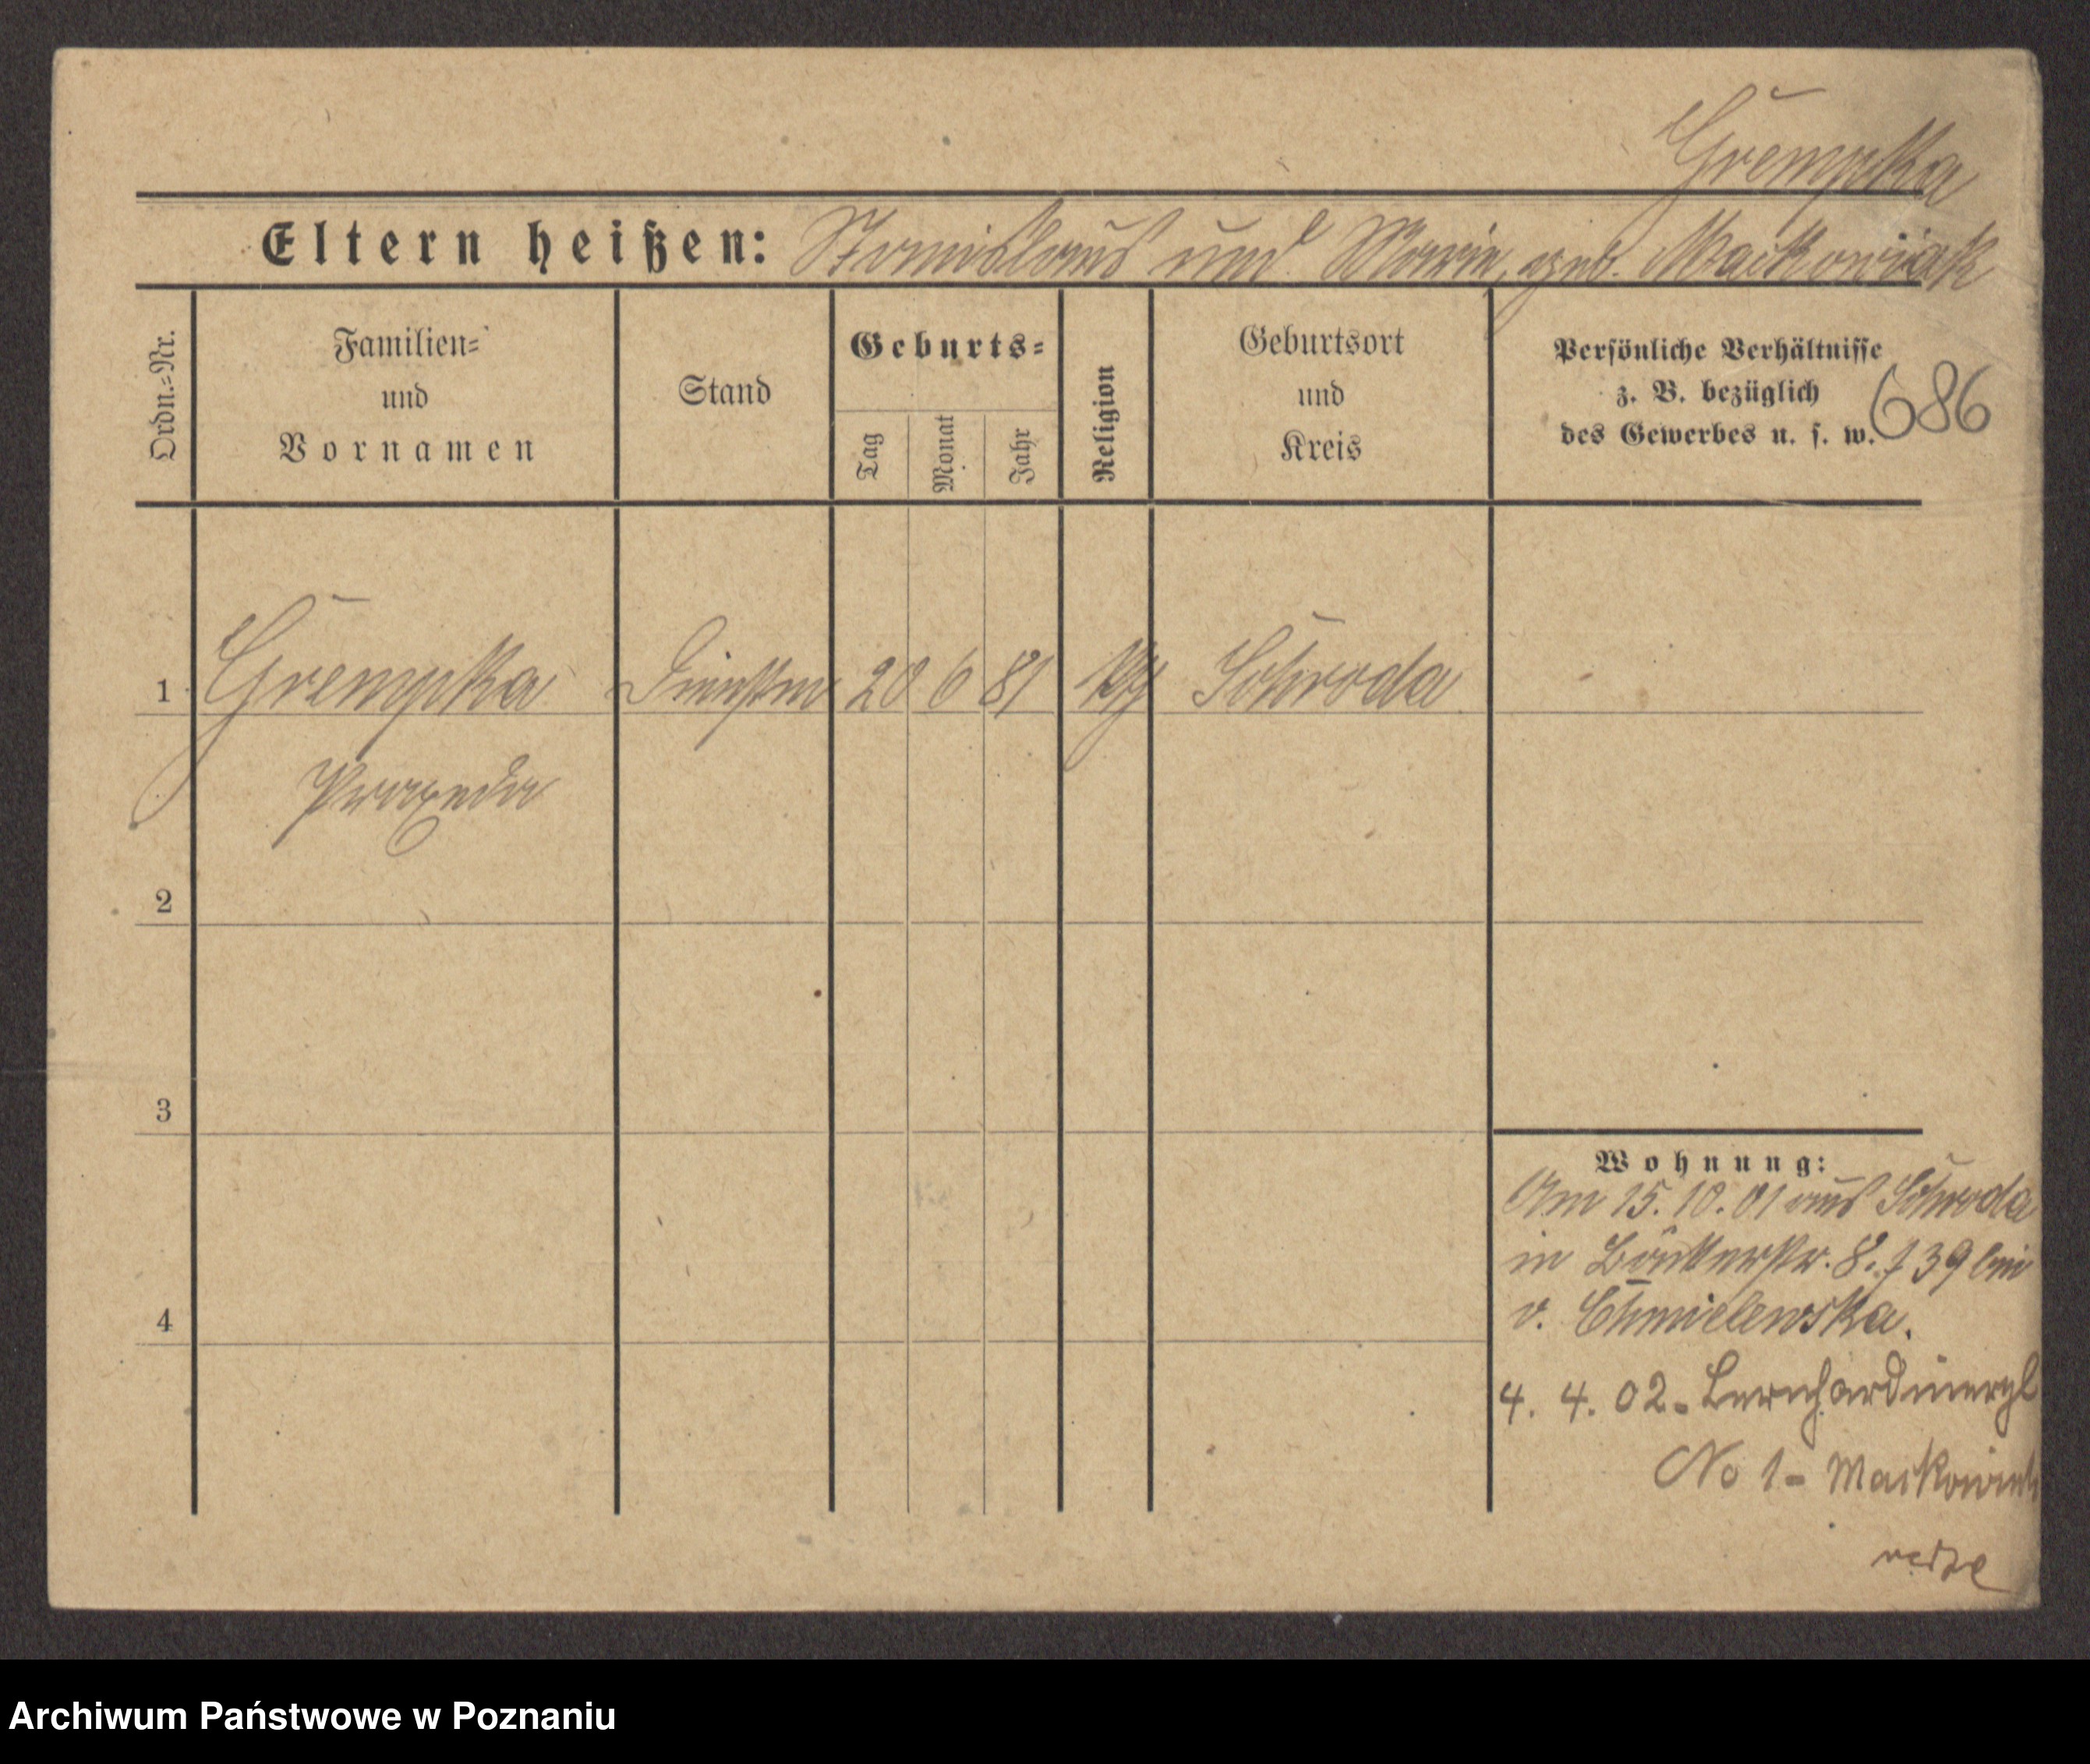 Grempka
Eltern heißen: Stanislaus und Marie, geb. Maćkowiak
Ordn.-Nr.
Familien-
und
Vornamen
Stand
Geburts-
Tag
Monat
Jahr
Religion
Geburtsort
und
Kreis
Persönliche Verhältnisse
z. B. bezüglich
des Gewerbes u. s. w.
686
1 Grempka Dienstm 20 6 81 Schroda
Praxeda
2
3
4
Wohnung:
Am 15. 10. 01 aus Schroda
in Bäckerstr. 8. 39 bei
v. Chmielewska.
4. 4. 02 - Bernhardinerpl
No 1 - Maćkowiak
Archiwum Państwowe w Poznaniu